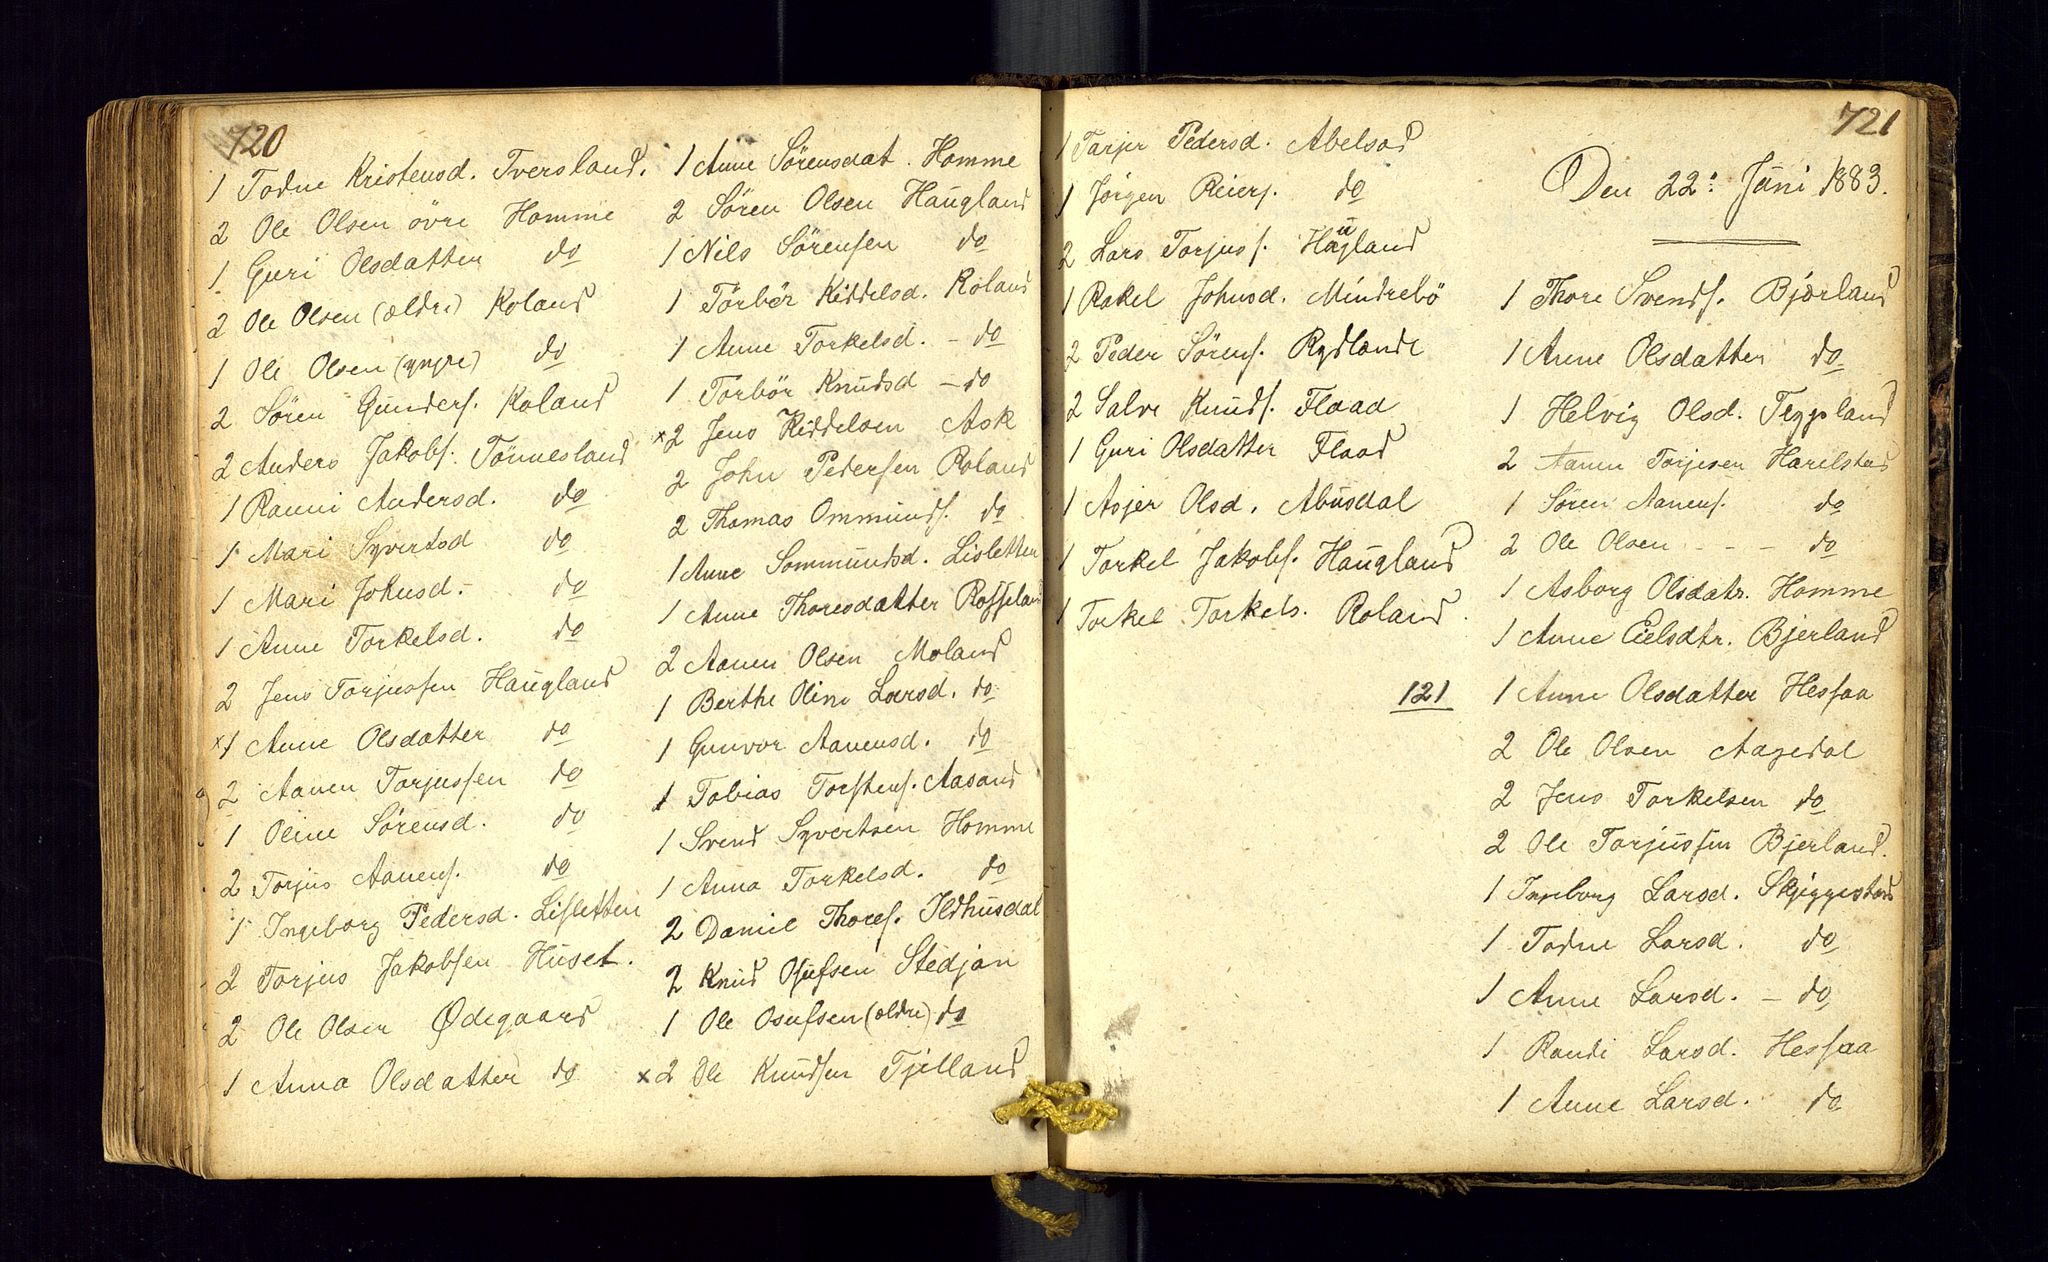 720
1 Todne Kristensd. Tversland.
2 Ole Olsen övre Homme
1 Guri Olsdatter do
2 Ole Olsen (ældre) Roland
1 Ole Olsen (yngre) do
2 Sören Gunders. Roland
2 Anders Jakobs. Tönnesland
1 Ranni Andersd. do
1 Mari Syvertsd do
1 Mari Johnsd. do
1 Anne Torkelsd. do
2 Jens Torjussen Haugland
x1 Anne Olsdatter do
2 Aanen Torjussen do
1 Oline Sörensd. do
2 Torjus Aanens. do
1 Ingeborg Pedersd. Lisletten
2 Torjus Jakobsen Huset.
2 Ole Olsen Ødegaard
1 Anna Olsdatter do
1 Anne Sörensdat. Homme
2 Sören Olsen Haugland
1 Nils Sörensen do
1 Törbör Kiddelsd. Roland
1 Anne Torkelsd. - do
1 Torbör Knudsd - do
x2 Jens Kiddelsen Ask
2 John Pedersen Roland
2 Thomas Ommunds. do
1 Anne Sommundsd. Lisletten
1 Anne Thoresdatter Rosseland
2 Aanen Olsen Moland
1 Berthe Oline Larsd. do
1 Gunvor Aanensd. do
1 Tobias Torstens. Aasand
1 Svend Syvertsen Homme
1 Anna Torkelsd. do
2 Daniel Thores. Ildhusdal
2 Knud Osufsen Stedjan
1 Ole Osufsen (ældre) do
x2 Ole Knudsen Tjelland
1 Tarjer Pedersd. Abelsad
1 Jörgen Reiers. do
2 Lars Torjuss. Haugland
1 Rakel Johnsd. Mindrebö
2 Peder Sörens. Rydlande
2 Salve Knuds. Flaad
1 Guri Olsdatter Flaad
1 Asjer Olsd. Abusdal
1 Torkel Jakobs. Haugland
1 Torkel Torkels. Roland.
121
721
Den 22: Juni 1883.
1 Thore Svends. Bjærland
1 Anne Olsdatter do
1 Helvig Olsd. Teppsland
2 Aanen Torjesen Harilstad
1 Sören Aanens. do
2 Ole Olsen - - - do
1 Asborg Olsdatr. Homme
1 Anne Eielsdtr. Bjerland
1 Anne Olsdatter Hessaa
2 Ole Olsen Aagedal
2 Jens Torkelsen do
2 Ole Torjussen Bjerland.
1 Ingeborg Larsd. Skjeggestad
1 Todne Larsd. do
1 Anne Larsd. - do
1 Randi Larsd. Hessaa
1 Anne Larsd. do